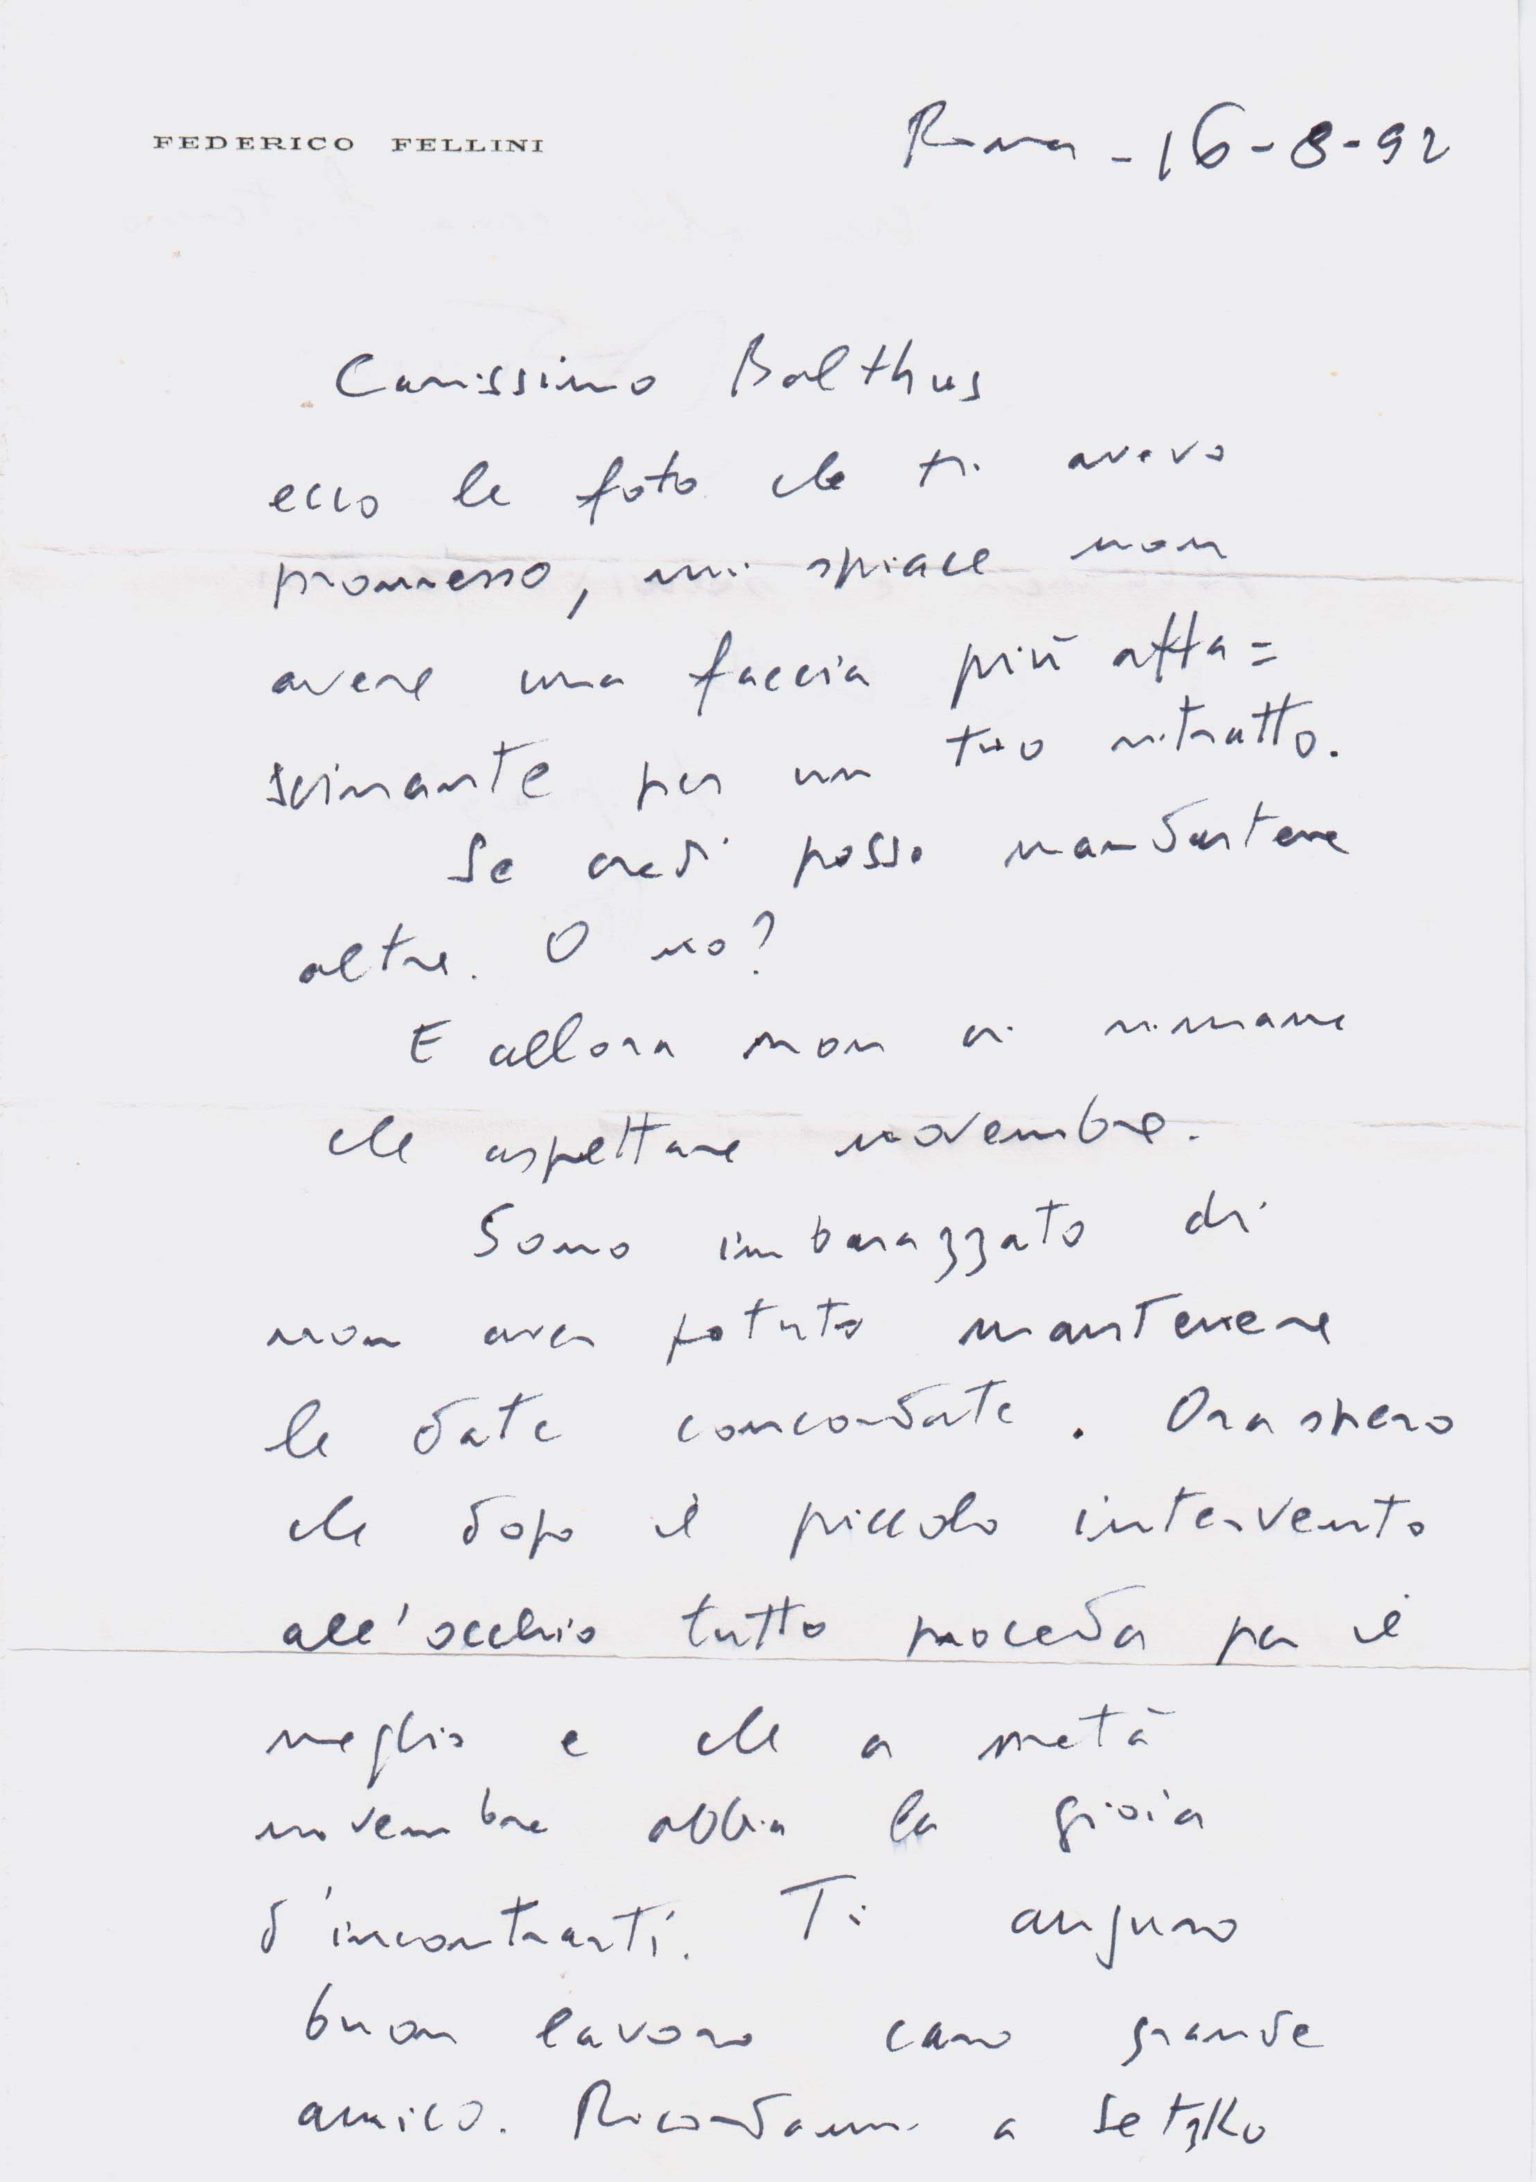 FEDERICO FELLINI
Roma - 16-8-92
Carissimo Balthus
ecco le foto che ti avevo
promesso, mi spiace non
avere una faccia più affa=
scinante per un tuo ritratto.
Se credi posso mandartene
altre. O no?
E allora non ci rimane
che aspettare novembre.
Sono imbarazzato di
non aver potuto mantenere
le date concordate. Ora spero
che dopo il piccolo intervento
all'occhio tutto proceda per il
meglio e che a metà
novembre abbia la gioia
d'incontrarti. Ti auguro
buon lavoro caro grande
amico. Ricordami a Setzko